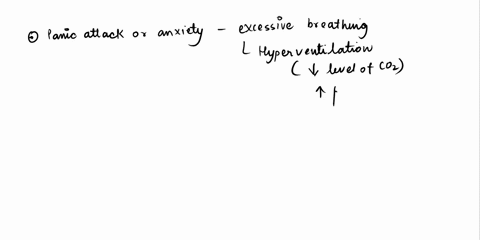 ⊙ Panic attack or anxiety – excessive breathing
↳ Hyperventilation
( ↓ level of CO2)
↑ p